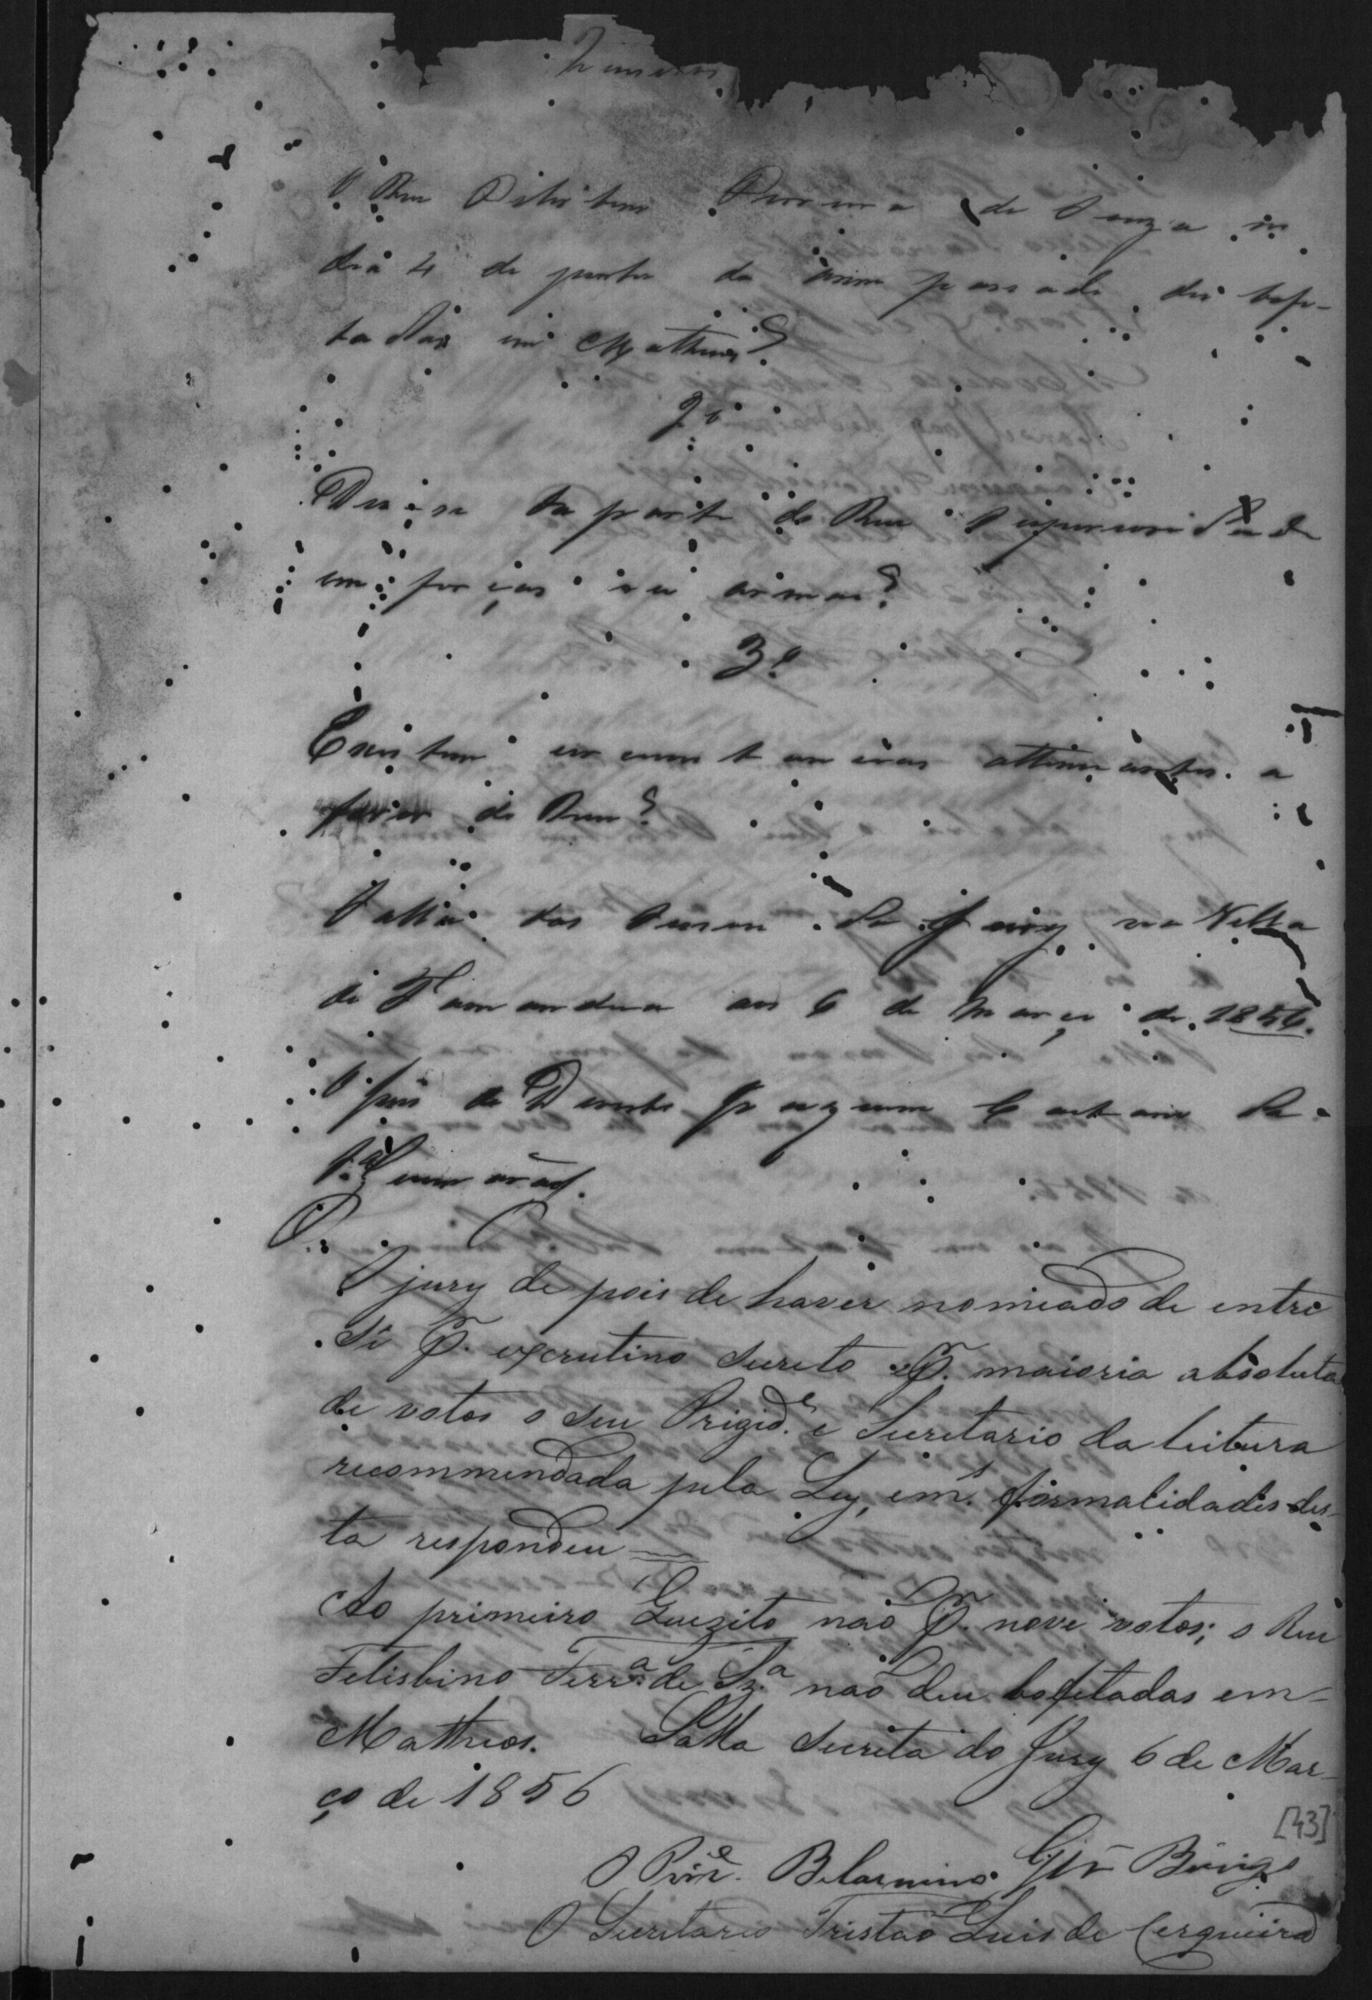 O Reu Felisbino Ferreira de Souza no
dia 4 de junho do anno passado deu bofe-
tadas em Matheus?
2º
Deu-se da parte do Reu superioridade
em forças ou armas?
3º
Existem circumstancias attenuantes a
favor do Reu?
Salla das do Jury na Villa
de Tamandua aos 6 de Março de 1856.
O Juis de Direito
O jury de pois de haver nomeado de entre
Si P. escrutino secreto e P. maioria absoluta
de votos o seu Prizid.e e Secretario da leitura
recommendada pela Ley, e m.s formalidades des-
ta respondeu —
Ao primeiro Quezito naõ P. nove votos; o Reu
Felisbino Ferr.a de Sz.a naõ deu bofetadas em
Matheos. Salla secreta do Jury 6 de Mar-
ço de 1856
[43]
O Prize. Belarmino
O Secretario Tristaõ Luis de Cerqueira